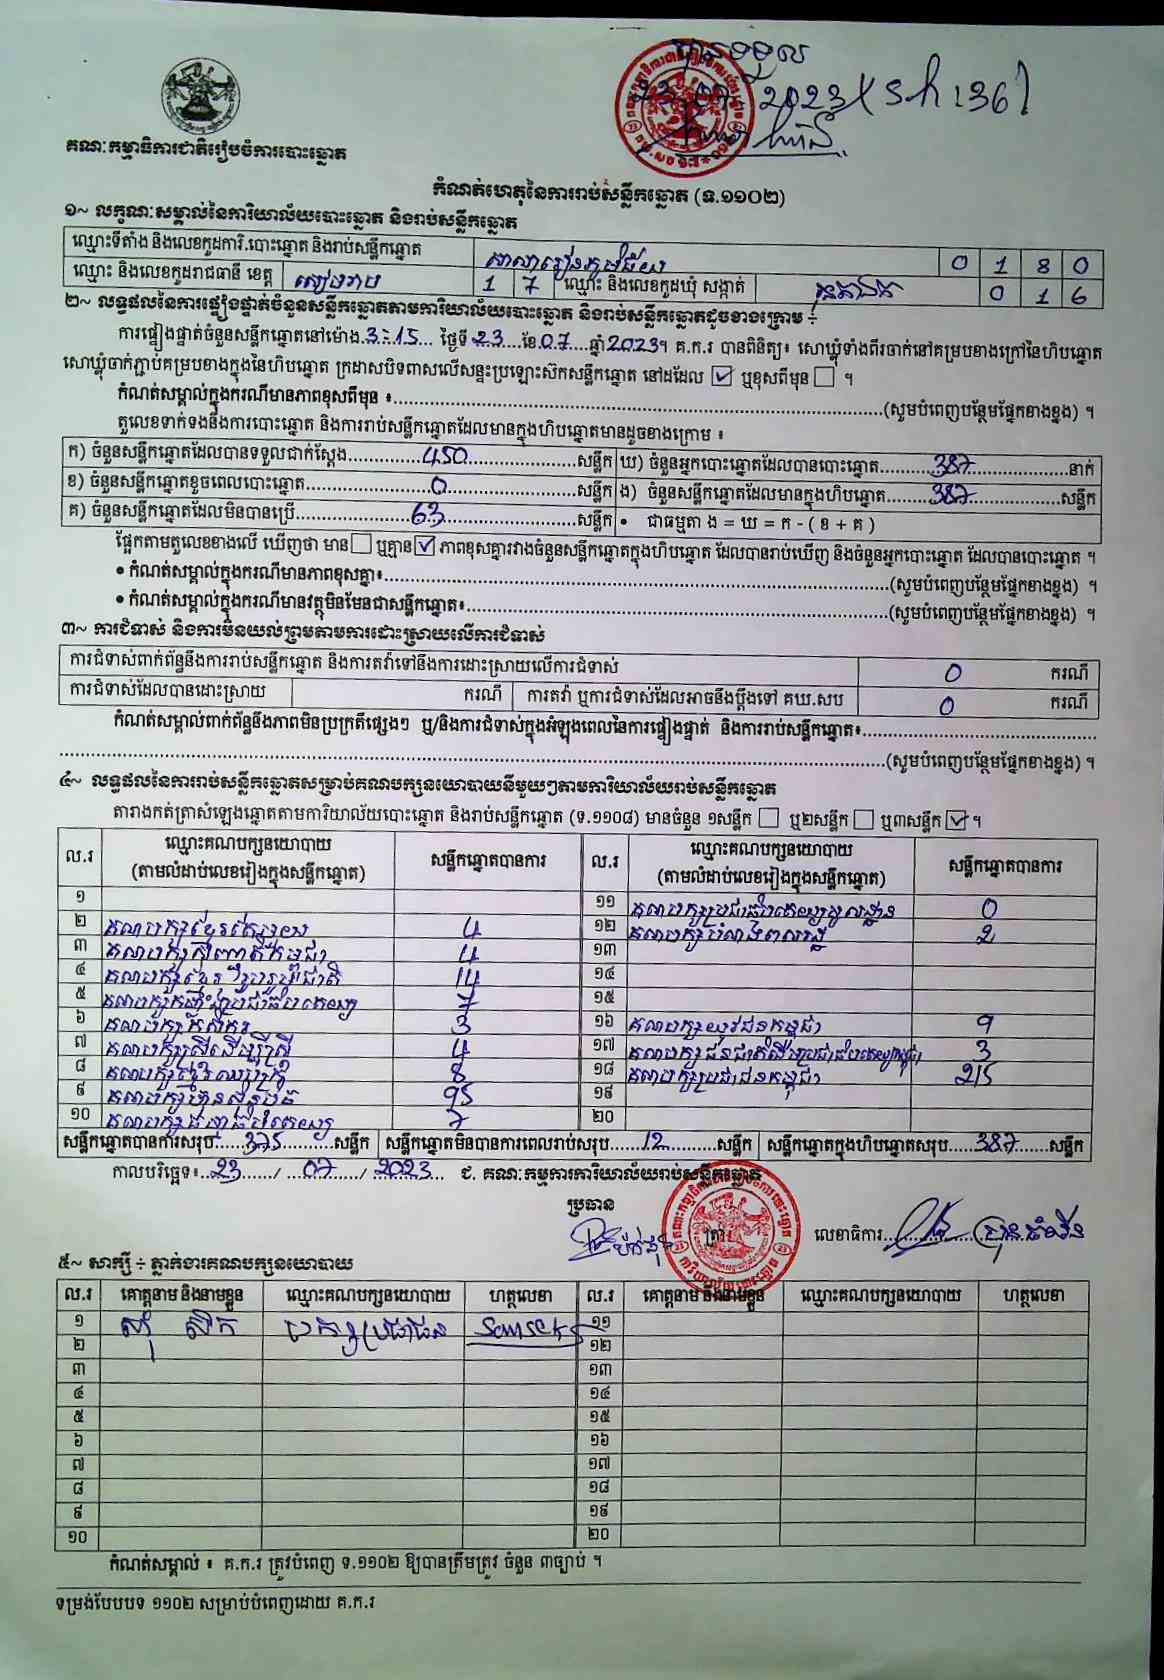 បានទទួល
23.07.2023 (ទ h :36)
គណៈកម្មាធិការជាតិរៀបចំការបោះឆ្នោត
កំណត់ហេតុនៃការរាប់សន្លឹកឆ្នោត (ទ.១១០២)
១~ លក្ខណៈសម្គាល់នៃការិយាល័យបោះឆ្នោត និងរាប់សន្លឹកឆ្នោត
ឈ្មោះទីតាំង និងលេខកូដការិ.បោះឆ្នោត និងរាប់សន្លឹកឆ្នោត សាលារៀនភូមិជ័យ 0 1 8 0
ឈ្មោះ និងលេខកូដរាជធានី ខេត្ត សៀមរាប 1 7 ឈ្មោះ និងលេខកូដឃុំ សង្កាត់ 0 1 6
២~ លទ្ធផលនៃការផ្ទៀងផ្ទាត់ចំនួនសន្លឹកឆ្នោតតាមការិយាល័យបោះឆ្នោត និងរាប់សន្លឹកឆ្នោតដូចខាងក្រោម ÷
ការផ្ទៀងផ្ទាត់ចំនួនសន្លឹកឆ្នោតនៅម៉ោង 3:15 ថ្ងៃទី 23 ខែ 07 ឆ្នាំ 2023។ គ.ក.រ បានពិនិត្យ៖ សោឃ្លុំទាំងពីរចាក់នៅគម្របខាងក្រៅនៃហិបឆ្នោត
សោឃ្លុំចាក់ភ្ជាប់គម្របខាងក្នុងនៃហិបឆ្នោត ក្រដាសបិទពាសលើសន្ទះប្រឡោះស៊កសន្លឹកឆ្នោត នៅដដែល ☑ ឬខុសពីមុន ☐ ។
កំណត់សម្គាល់ក្នុងករណីមានភាពខុសពីមុន ៖ (សូមបំពេញបន្ថែមផ្នែកខាងខ្នង) ។
តួលេខទាក់ទងនឹងការបោះឆ្នោត និងការរាប់សន្លឹកឆ្នោតដែលមានក្នុងហិបឆ្នោតមានដូចខាងក្រោម ៖
ក) ចំនួនសន្លឹកឆ្នោតដែលបានទទួលជាក់ស្តែង 450 សន្លឹក ឃ) ចំនួនអ្នកបោះឆ្នោតដែលបានបោះឆ្នោត 387 នាក់
ខ) ចំនួនសន្លឹកឆ្នោតខូចពេលបោះឆ្នោត 0 សន្លឹក ង) ចំនួនសន្លឹកឆ្នោតដែលមានក្នុងហិបឆ្នោត 387 សន្លឹក
គ) ចំនួនសន្លឹកឆ្នោតដែលមិនបានប្រើ 63 សន្លឹក • ជាធម្មតា ង = ឃ = ក - ( ខ + គ )
ផ្អែកតាមតួលេខខាងលើ ឃើញថា មាន ☐ ឬគ្មាន ☑ ភាពខុសគ្នារវាងចំនួនសន្លឹកឆ្នោតក្នុងហិបឆ្នោត ដែលបានរាប់ឃើញ និងចំនួនអ្នកបោះឆ្នោត ដែលបានបោះឆ្នោត ។
• កំណត់សម្គាល់ក្នុងករណីមានភាពខុសគ្នា៖ (សូមបំពេញបន្ថែមផ្នែកខាងខ្នង) ។
• កំណត់សម្គាល់ក្នុងករណីមានវត្ថុមិនមែនជាសន្លឹកឆ្នោត៖ (សូមបំពេញបន្ថែមផ្នែកខាងខ្នង) ។
៣~ ការជំទាស់ និងការមិនយល់ព្រមតាមការដោះស្រាយលើការជំទាស់
ការជំទាស់ពាក់ព័ន្ធនឹងការរាប់សន្លឹកឆ្នោត និងការតវ៉ាទៅនឹងការដោះស្រាយលើការជំទាស់ 0 ករណី
ការជំទាស់ដែលបានដោះស្រាយ ករណី ការតវ៉ា ឬការជំទាស់ដែលអាចនឹងប្តឹងទៅ គឃ.សប 0 ករណី
កំណត់សម្គាល់ពាក់ព័ន្ធនឹងភាពមិនប្រក្រតីផ្សេងៗ ឬ/និងការជំទាស់ក្នុងអំឡុងពេលនៃការផ្ទៀងផ្ទាត់ និងការរាប់សន្លឹកឆ្នោត៖
(សូមបំពេញបន្ថែមផ្នែកខាងខ្នង) ។
៤~ លទ្ធផលនៃការរាប់សន្លឹកឆ្នោតសម្រាប់គណបក្សនយោបាយនីមួយៗតាមការិយាល័យរាប់សន្លឹកឆ្នោត
តារាងកត់ត្រាសំឡេងឆ្នោតតាមការិយាល័យបោះឆ្នោត និងរាប់សន្លឹកឆ្នោត (ទ.១១០៨) មានចំនួន ១សន្លឹក ☐ ឬ២សន្លឹក ☐ ឬ៣សន្លឹក ☑ ។
ល.រ ឈ្មោះគណបក្សនយោបាយ (តាមលំដាប់លេខរៀងក្នុងសន្លឹកឆ្នោត) សន្លឹកឆ្នោតបានការ ល.រ ឈ្មោះគណបក្សនយោបាយ (តាមលំដាប់លេខរៀងក្នុងសន្លឹកឆ្នោត) សន្លឹកឆ្នោតបានការ
១ ១១ គណបក្សប្រជាធិបតេយ្យមូលដ្ឋាន 0
២ គណបក្សខ្មែរតែមួយ 4 ១២ គណបក្សបំណងពលរដ្ឋ 2
៣ គណបក្សកម្ពុជា 4 ១៣
៤ គណបក្សខ្មែររួបរួមជាតិ 14 ១៤
៥ គណបក្ស 7 ១៥
៦ គណបក្សកសិករ 3 ១៦ គណបក្សយុវជនកម្ពុជា 9
៧ គណបក្សស្រីដើម្បីស្រី 4 ១៧ គណបក្សជនជាតិដើមប្រជាធិបតេយ្យកម្ពុជា 3
៨ គណបក្ស 8 ១៨ គណបក្សប្រជាជនកម្ពុជា 215
៩ គណបក្សហ្វ៊ុនស៊ិនប៉ិច 95 ១៩
១០ គណបក្សធម្មាធិបតេយ្យ 7 ២០
សន្លឹកឆ្នោតបានការសរុប 375 សន្លឹក សន្លឹកឆ្នោតមិនបានការពេលរាប់សរុប 12 សន្លឹក សន្លឹកឆ្នោតក្នុងហិបឆ្នោតសរុប 387 សន្លឹក
កាលបរិច្ឆេទ៖ 23 / 07 / 2023 ជ. គណៈកម្មការការិយាល័យរាប់សន្លឹកឆ្នោត
ប្រធាន
ត្រា លេខាធិការ
៥~ សាក្សី ÷ ភ្នាក់ងារគណបក្សនយោបាយ
ល.រ គោត្តនាម និងនាមខ្លួន ឈ្មោះគណបក្សនយោបាយ ហត្ថលេខា ល.រ គោត្តនាម និងនាមខ្លួន ឈ្មោះគណបក្សនយោបាយ ហត្ថលេខា
១ ស៊ុំ សឹក បក្សប្រជាជន Somsek ១១
២ ១២
៣ ១៣
៤ ១៤
៥ ១៥
៦ ១៦
៧ ១៧
៨ ១៨
៩ ១៩
១០ ២០
កំណត់សម្គាល់ ៖ គ.ក.រ ត្រូវបំពេញ ទ.១១០២ ឱ្យបានត្រឹមត្រូវ ចំនួន ៣ច្បាប់ ។
ទម្រង់បែបបទ ១១០២ សម្រាប់បំពេញដោយ គ.ក.រ